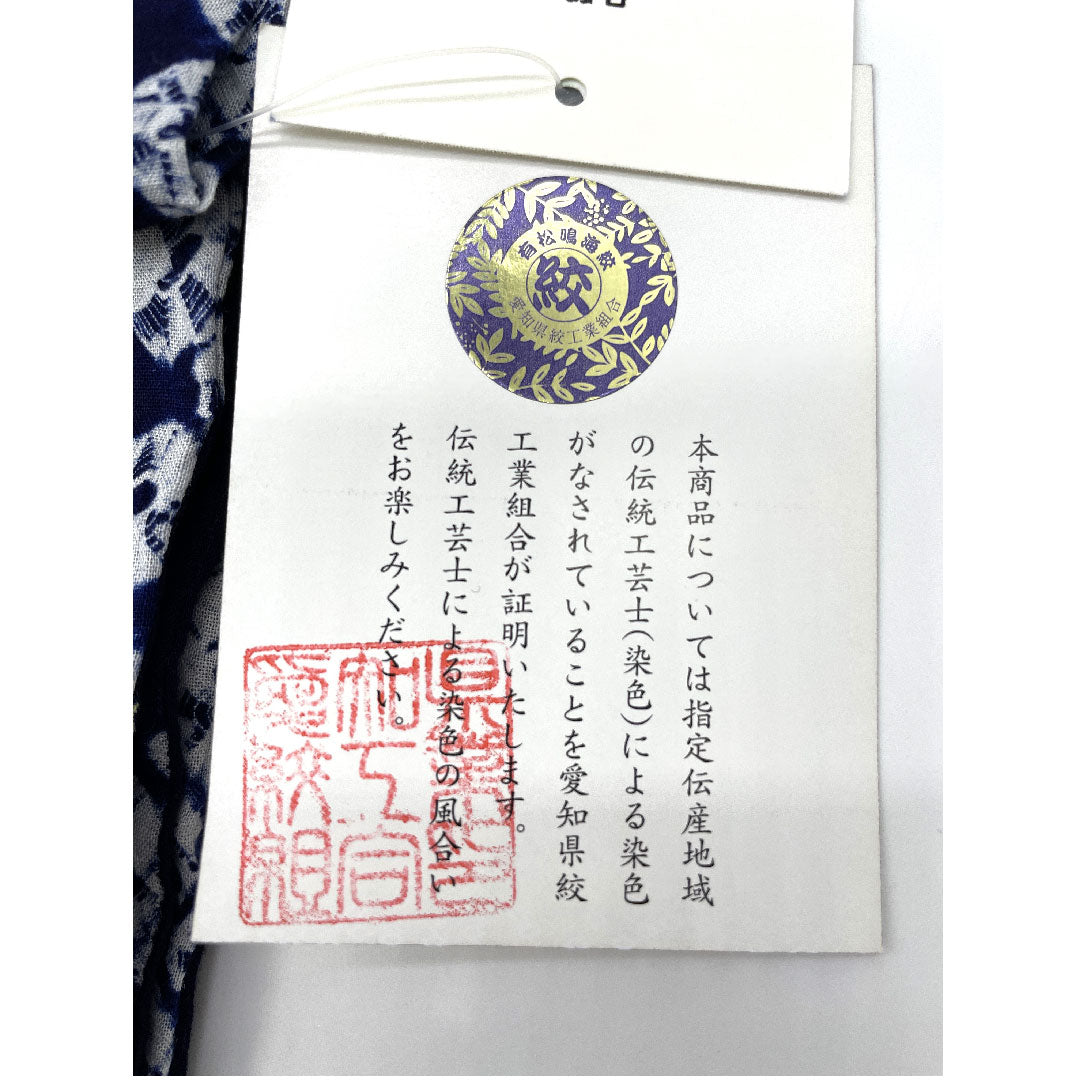 有松鳴海絞
絞
愛知県絞工業組合
本商品については指定伝産地域
の伝統工芸士(染色)による染色
がなされていることを愛知県絞
工業組合が証明いたします。
伝統工芸士による染色の風合い
をお楽しみください。